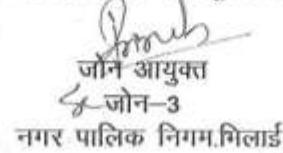 जोन आयुक्त
जोन-3
नगर पालिक निगम.भिलाई